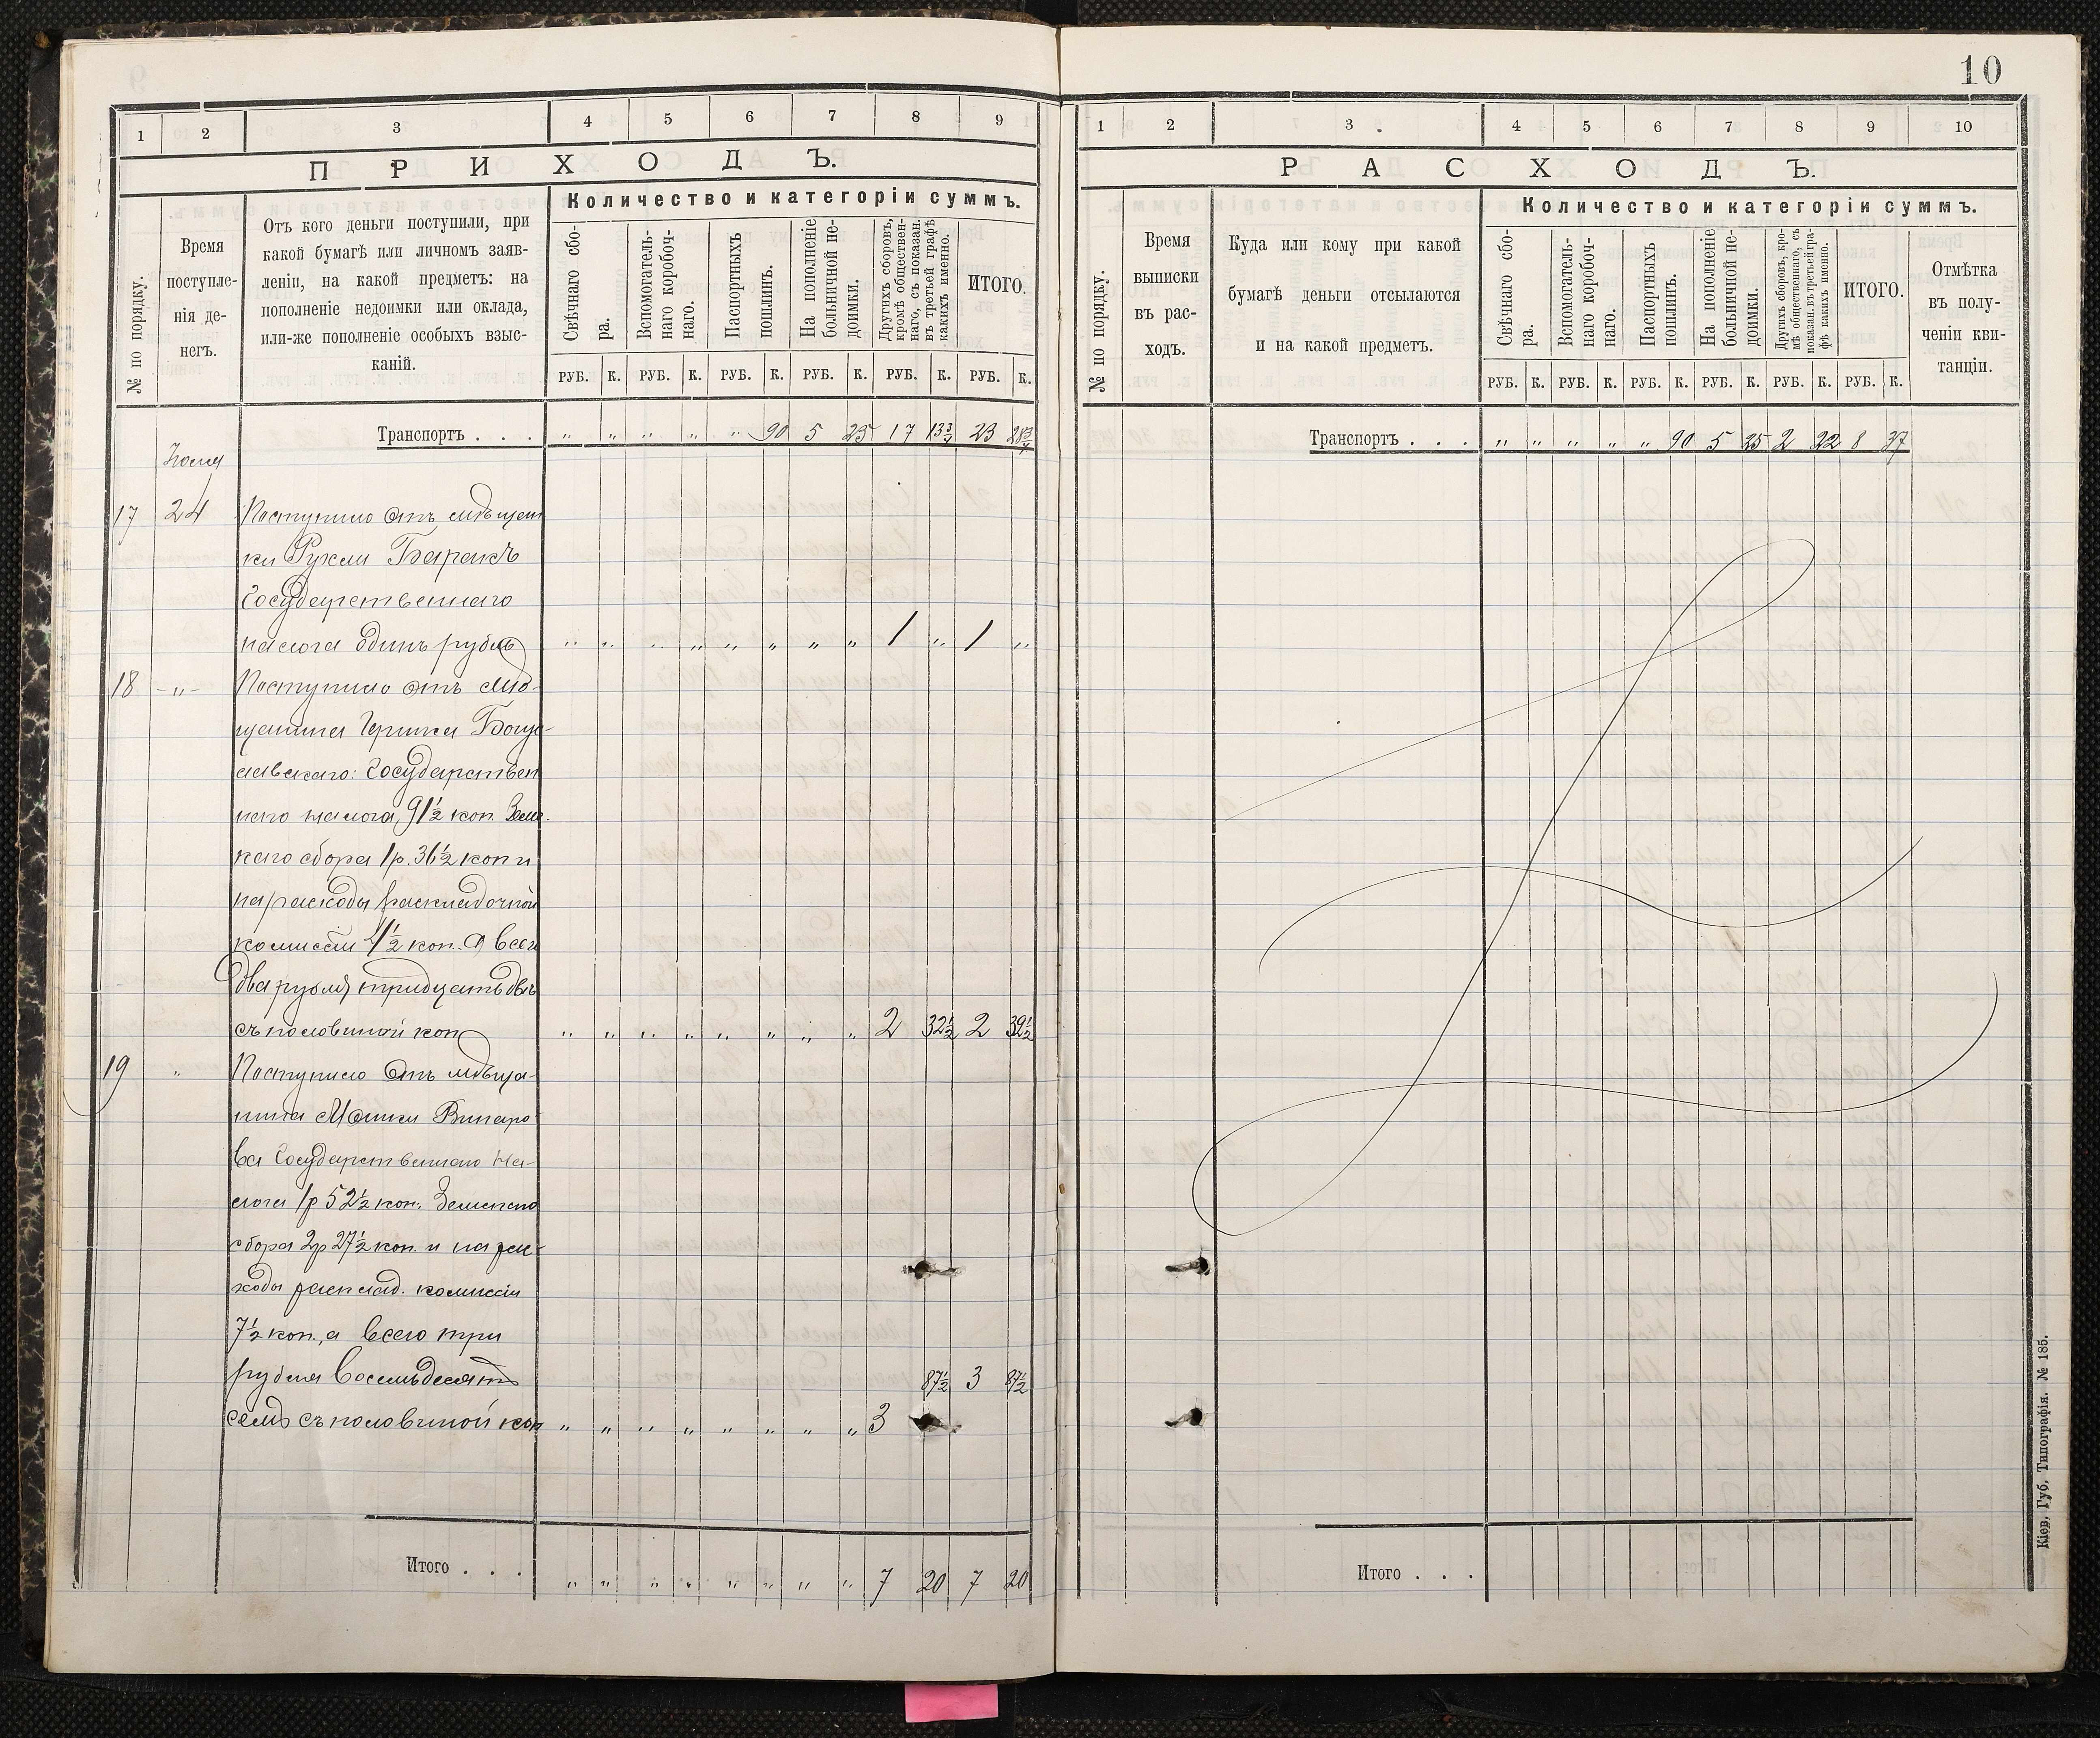 1 2 3 4 5 6 7 8 9
ПРИХОДЪ.
№ по порядку.
Время
поступле-
нія де-
негъ.
Отъ кого деньги поступили, при
какой бумагѣ или личномъ заяв-
леніи, на какой предметъ: на
пополненіе недоимки или оклада,
или-же пополненіе особыхъ взыс-
каній.
Количество и категоріи суммъ.
Свѣчнаго сбо-
ра.
Вспомогатель-
наго коробоч-
наго.
Паспортныхъ
пошлинъ.
На пополненіе
больничной не-
доимки.
Другихъ сборовъ,
кромѣ обществен-
наго, съ показан.
въ третьей графѣ
какихъ именно.
ИТОГО.
РУБ. К. РУБ. К. РУБ. К. РУБ. К. РУБ. К. РУБ. К.
Транспортъ . . . " " " " " 90 5 25 17 13¾ 23 28¾
17 24 Поступило отъ мѣщан
ки Рухли
Государственнаго
налога одинъ рубль " " " " " " " " 1 " 1 "
18 -"- Поступило отъ мѣ-
щанина Богу-
славскаго: Государствен
наго налога, 91½ коп. Земс
каго сбора 1р. 36½ коп и
на расходы раскладочной
комиссіи 4½ коп. а всего
два рубля тридцать двѣ
съ половиной коп " " " " " " " " 2 32½ 2 32½
19 " Поступило отъ мѣща-
нина Мошки Винаро
ва Государственнаго на-
лога 1р 52½ коп. Земскаго
сбора 2р 27½ коп. и на рас-
ходы расклад. комиссіи
7½ коп., а всего три
рубля восемьдесятъ 87½ 3 87½
семь съ половиной коп " " " " " " " " 3
Итого . . . " " " " " " " " 7 20 7 20
10
1 2 3 4 5 6 7 8 9 10
РАСХОДЪ.
№ по порядку.
Время
выписки
въ рас-
ходъ.
Куда или кому при какой
бумагѣ деньги отсылаются
и на какой предметъ.
Количество и категоріи суммъ.
Свѣчнаго сбо-
ра.
Вспомогатель-
наго коробоч-
наго.
Паспортныхъ
пошлинъ.
На пополненіе
больничной не-
доимки.
Другихъ сборовъ, кро-
мѣ общественнаго, съ
показан. въ третьей гра-
фѣ какихъ именно.
ИТОГО.
Отмѣтка
въ полу-
ченіи кви-
танціи.
РУБ. К. РУБ. К. РУБ. К. РУБ. К. РУБ. К. РУБ. К.
Транспортъ . . . " " " " " 90 5 25 2 22 8 37
Итого . . .
Кіев. Губ. Типографія. № 185.